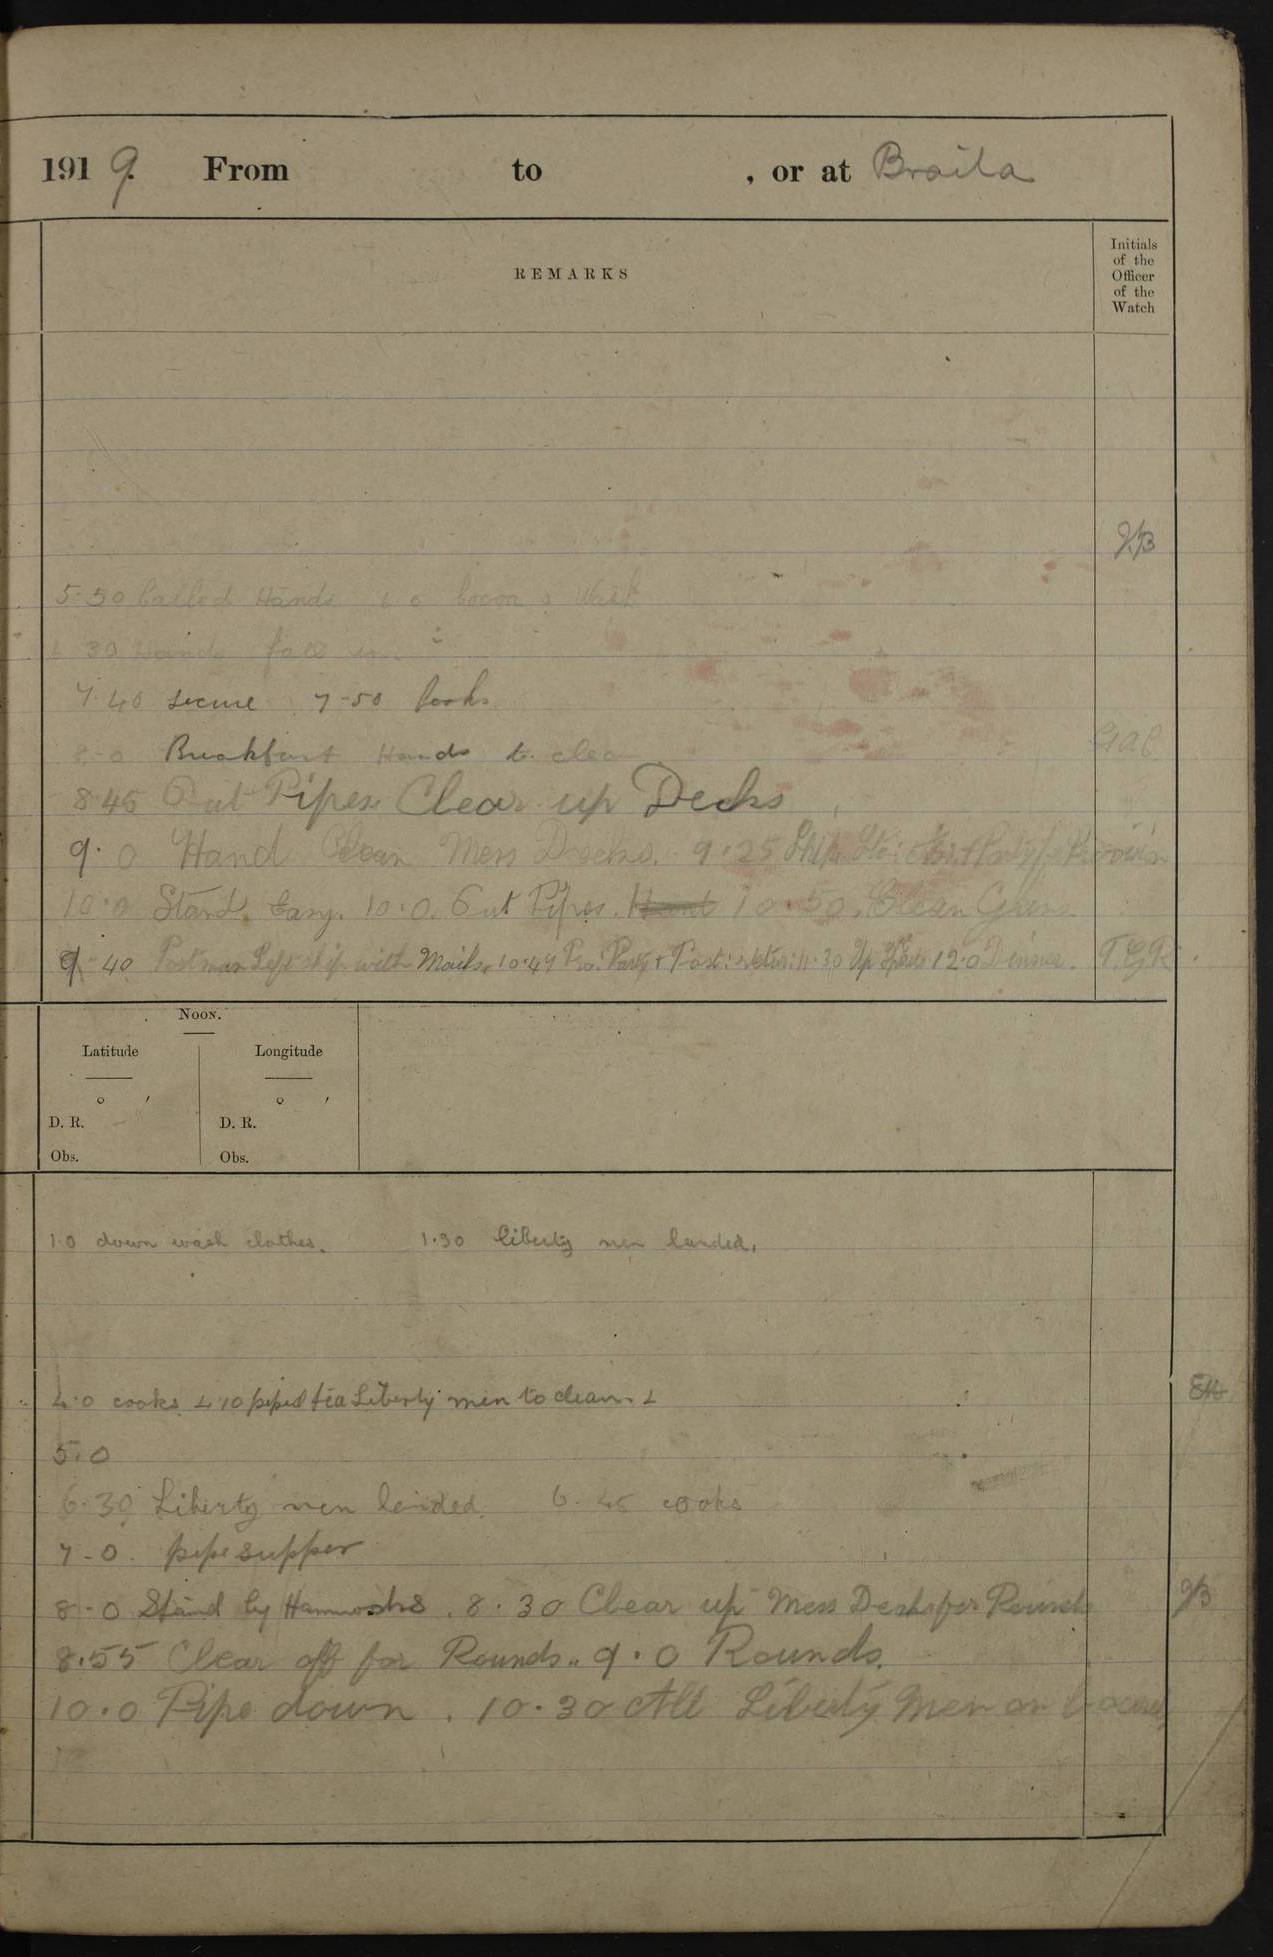 1919. From to , or at Braila
REMARKS
Initials
of the
Officer
of the
Watch
JB
5-50 Called Hands cocoa & Wash
30 Hands fall in.
7.40 secure 7-50 Cooks
8-0 Breakfast Hands to clea
8.45 Out Pipes Clear up Decks
9.0 Hand Clean Mess Decks. 9.25 Ship
10.0 Stand Easy. 10.0. Out Pipes. 10.50. Clean Guns.
9-40 Postman Left ship with Mails. 10.47 Pro: Party & Post: retur: 11.30 Up Spirits 12.0 Dinner. T.G.R.
NOON.
Latitude Longitude
° ′ ° ′
D. R. D. R.
Obs. Obs.
1.0 down wash clothes. 1.30 liberty men landed.
4.0 cooks 4.10 piped tea Liberty men to clean.
5.0
6.30 Liberty men landed. 6.45 cooks
7-0. pipe supper
8-0 Stand by Hammocks. 8.30 Clear up Mess Decks for Rounds JB
8.55 Clear off for Rounds.. 9.0 Rounds.
10.0 Pipe down. 10.30 All Liberty Men on board